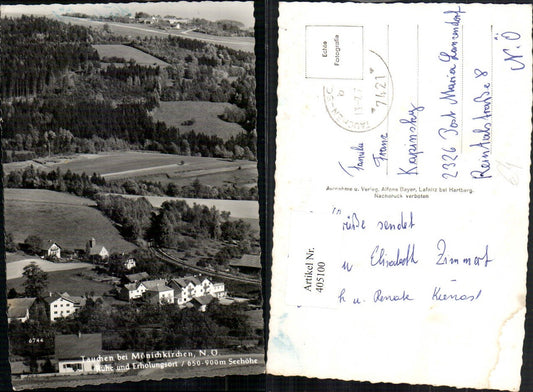 6744
Tauchen bei Mönichkirchen, N. Ö.
Ruhe und Erholungsort / 650-900m Seehöhe
Echte
Fotografie
7421
Familie
Franz
Kapinsky
2326 Post Maria Lanzendorf
Reinhaltstraße 8
N.Ö
Aufnahme u. Verlag. Alfons Bayer, Lafnitz bei Hartberg.
Nachdruck verboten
Artikel Nr.
405100
sendet
Elisabeth Zimmert
u. Renate Kienast